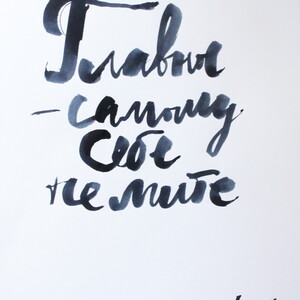 Главное
– самому
себе
не лгите